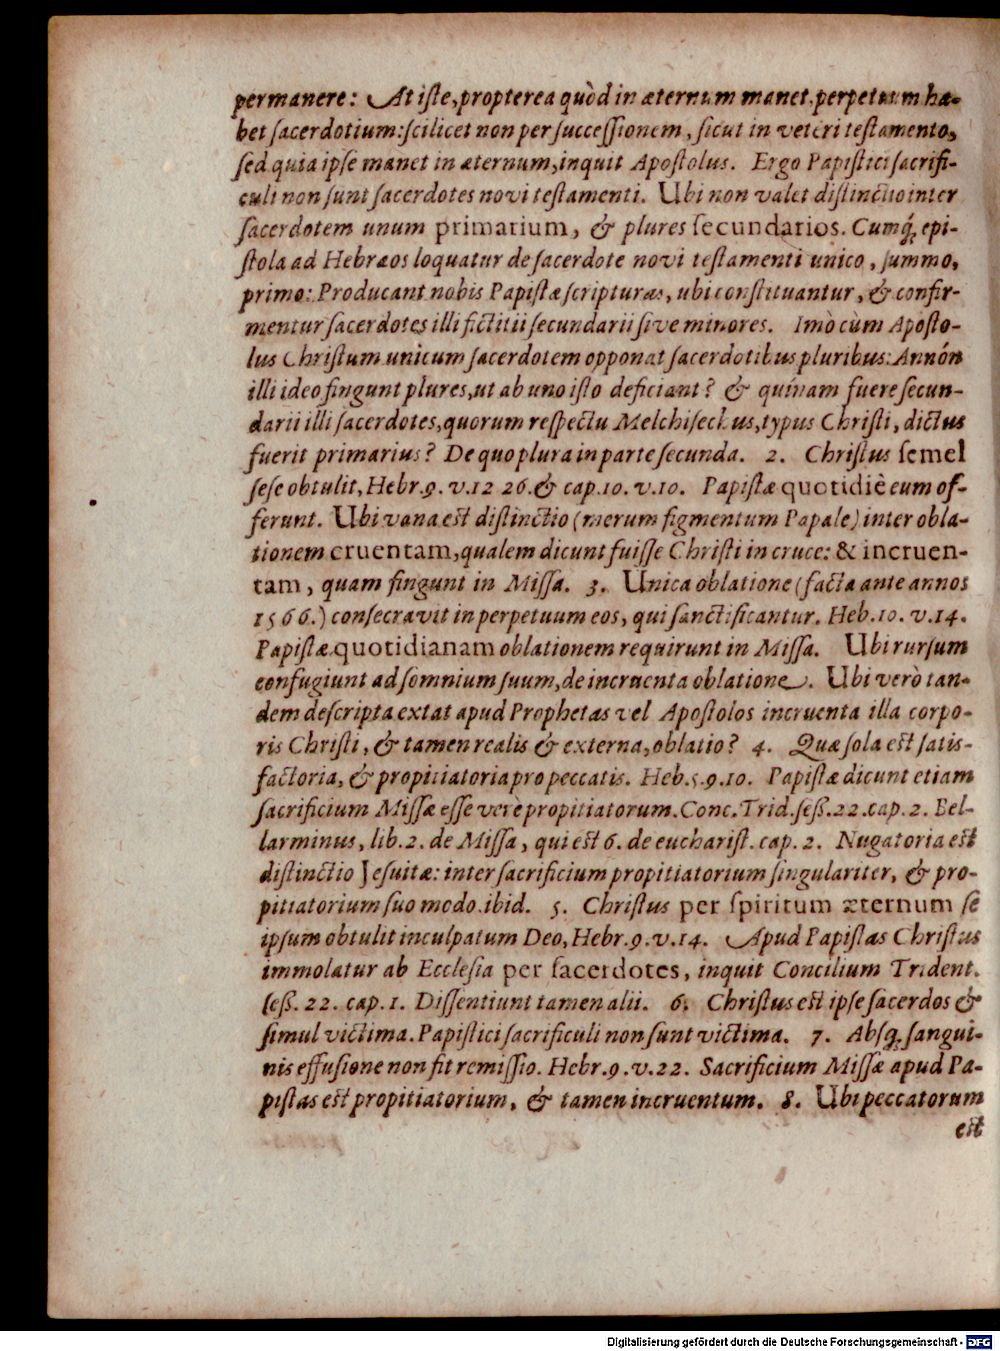 permanere: At iste, propterea quòd in æternum manet, perpetuum ha-
bet sacerdotium: scilicet non per successionem, sicut in veteri testamento,
sed quia ipse manet in æternum, inquit Apostolus. Ergo Papistici sacrifi-
culi non sunt sacerdotes novi testamenti. Ubi non valet distinctio inter
sacerdotem unum primarium, & plures secundarios. Cumq́; epi-
stola ad Hebræos loquatur de sacerdote novi testamenti unico, summo,
primo: Producant nobis Papistæ scripturas, ubi constituantur, & confir-
mentur sacerdotes illi fictitii secundarii sive minores. Imò cùm Aposto-
lus Christum unicum sacerdotem opponat sacerdotibus pluribus: Annón
illi ideo fingunt plures, ut ab uno isto deficiant? & quínam fuere secun-
darii illi sacerdotes, quorum respectu Melchisedecus, typus Christi, dictus
fuerit primarius? De quo plura in parte secunda. 2. Christus semel
sese obtulit, Hebr. 9. v. 12 26. & cap. 10. v. 10. Papistæ quotidiè eum of-
ferunt. Ubi vana est distinctio (merum figmentum Papale) inter obla-
tionem cruentam, qualem dicunt fuisse Christi in cruce: & incruen-
tam, quam fingunt in Missa. 3. Unica oblatione (facta ante annos
1566.) consecravit in perpetuum eos, qui sanctificantur. Heb. 10. v. 14.
Papistæ quotidianam oblationem requirunt in Missa. Ubi rursum
confugiunt ad somnium suum, de incruenta oblatione. Ubi verò tan-
dem descripta extat apud Prophetas vel Apostolos incruenta illa corpo-
ris Christi, & tamen realis & externa, oblatio? 4. Quæ sola est satis-
factoria, & propitiatoria pro peccatis. Heb. 5. 9. 10. Papistæ dicunt etiam
sacrificium Missæ esse vere propitiatorum. Conc. Trid. seß. 22. cap. 2. Bel-
larminus, lib. 2. de Missa, qui est 6. de eucharist. cap. 2. Nugatoria est
distinctio Jesuitæ: inter sacrificium propitiatorium singulariter, & pro-
pitiatorium suo modo. ibid. 5. Christus per spiritum æternum se
ipsum obtulit inculpatum Deo, Hebr. 9. v. 14. Apud Papistas Christus
immolatur ab Ecclesia per sacerdotes, inquit Concilium Trident.
seß. 22. cap. 1. Dissentiunt tamen alii. 6. Christus est ipse sacerdos &
simul victima. Papistici sacrificuli non sunt victima. 7. Absq́; sangui-
nis effusione non fit remissio. Hebr. 9. v. 22. Sacrificium Missæ apud Pa-
pistas est propitiatorium, & tamen incruentum. 8. Ubi peccatorum
est
Digitalisierung gefördert durch die Deutsche Forschungsgemeinschaft - DFG